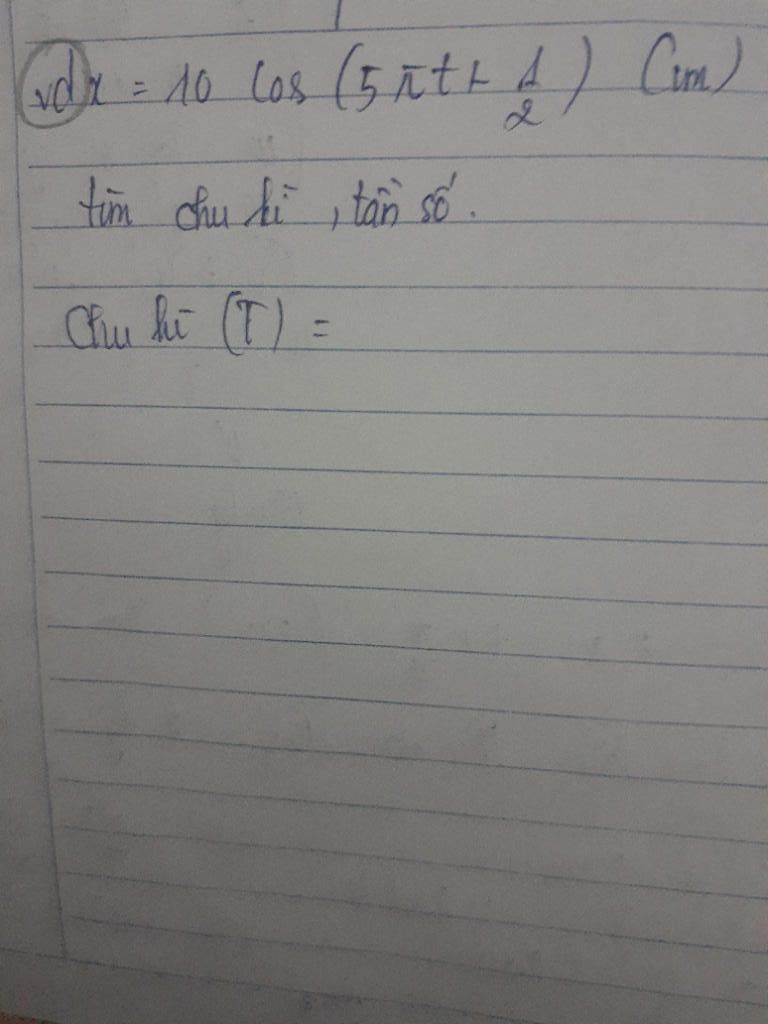 vd x = 10 cos (5πt + 1/2) (cm)
tìm chu kì, tần số.
Chu kì (T) =